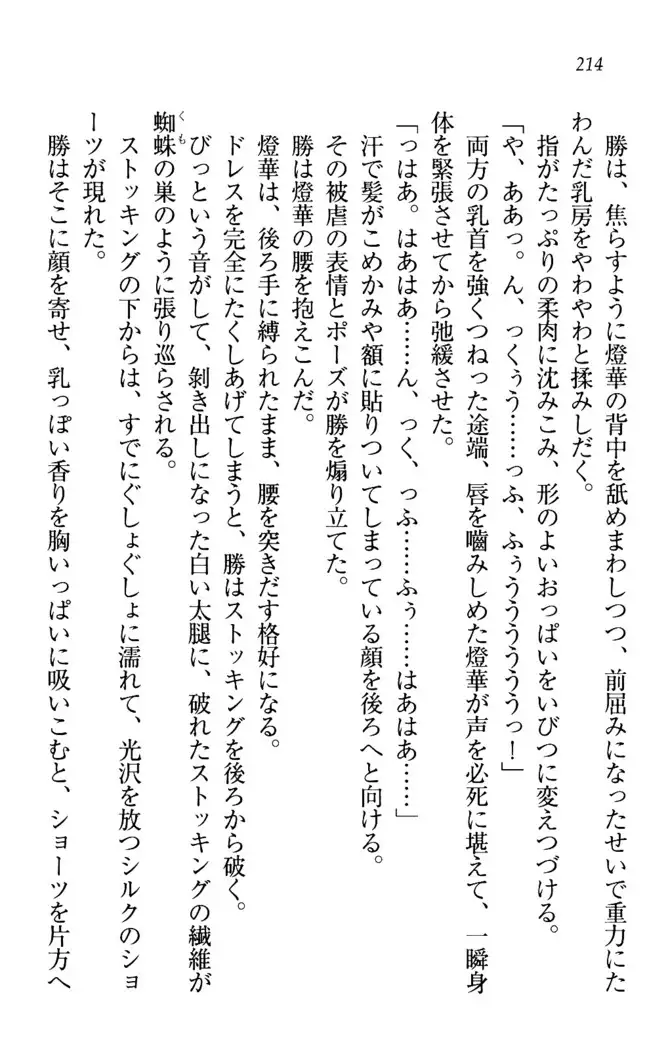 214
勝は、焦らすように燈華の背中を舐めまわしつつ、前屈みになったせいで重力にた
わんだ乳房をやわやわと揉みしだく。
指がたっぷりの柔肉に沈みこみ、形のよいおっぱいをいびつに変えつづける。
「や、ああっ。ん、っくぅう……っふ、ふぅううううううっ！」
両方の乳首を強くつねった途端、唇を嚙みしめた燈華が声を必死に堪えて、一瞬身
体を緊張させてから弛緩させた。
「っはあ。はあはあ……ん、っく、っふ……ふぅ……はあはあ……」
汗で髪がこめかみや額に貼りついてしまっている顔を後ろへと向ける。
その被虐の表情とポーズが勝を煽り立てた。
勝は燈華の腰を抱えこんだ。
燈華は、後ろ手に縛られたまま、腰を突きだす格好になる。
ドレスを完全にたくしあげてしまうと、勝はストッキングを後ろから破く。
びっという音がして、剝き出しになった白い太腿に、破れたストッキングの繊維が
蜘蛛の巣のように張り巡らされる。
くも
ストッキングの下からは、すでにぐしょぐしょに濡れて、光沢を放つシルクのショ
ーツが現れた。
勝はそこに顔を寄せ、乳っぽい香りを胸いっぱいに吸いこむと、ショーツを片方へ